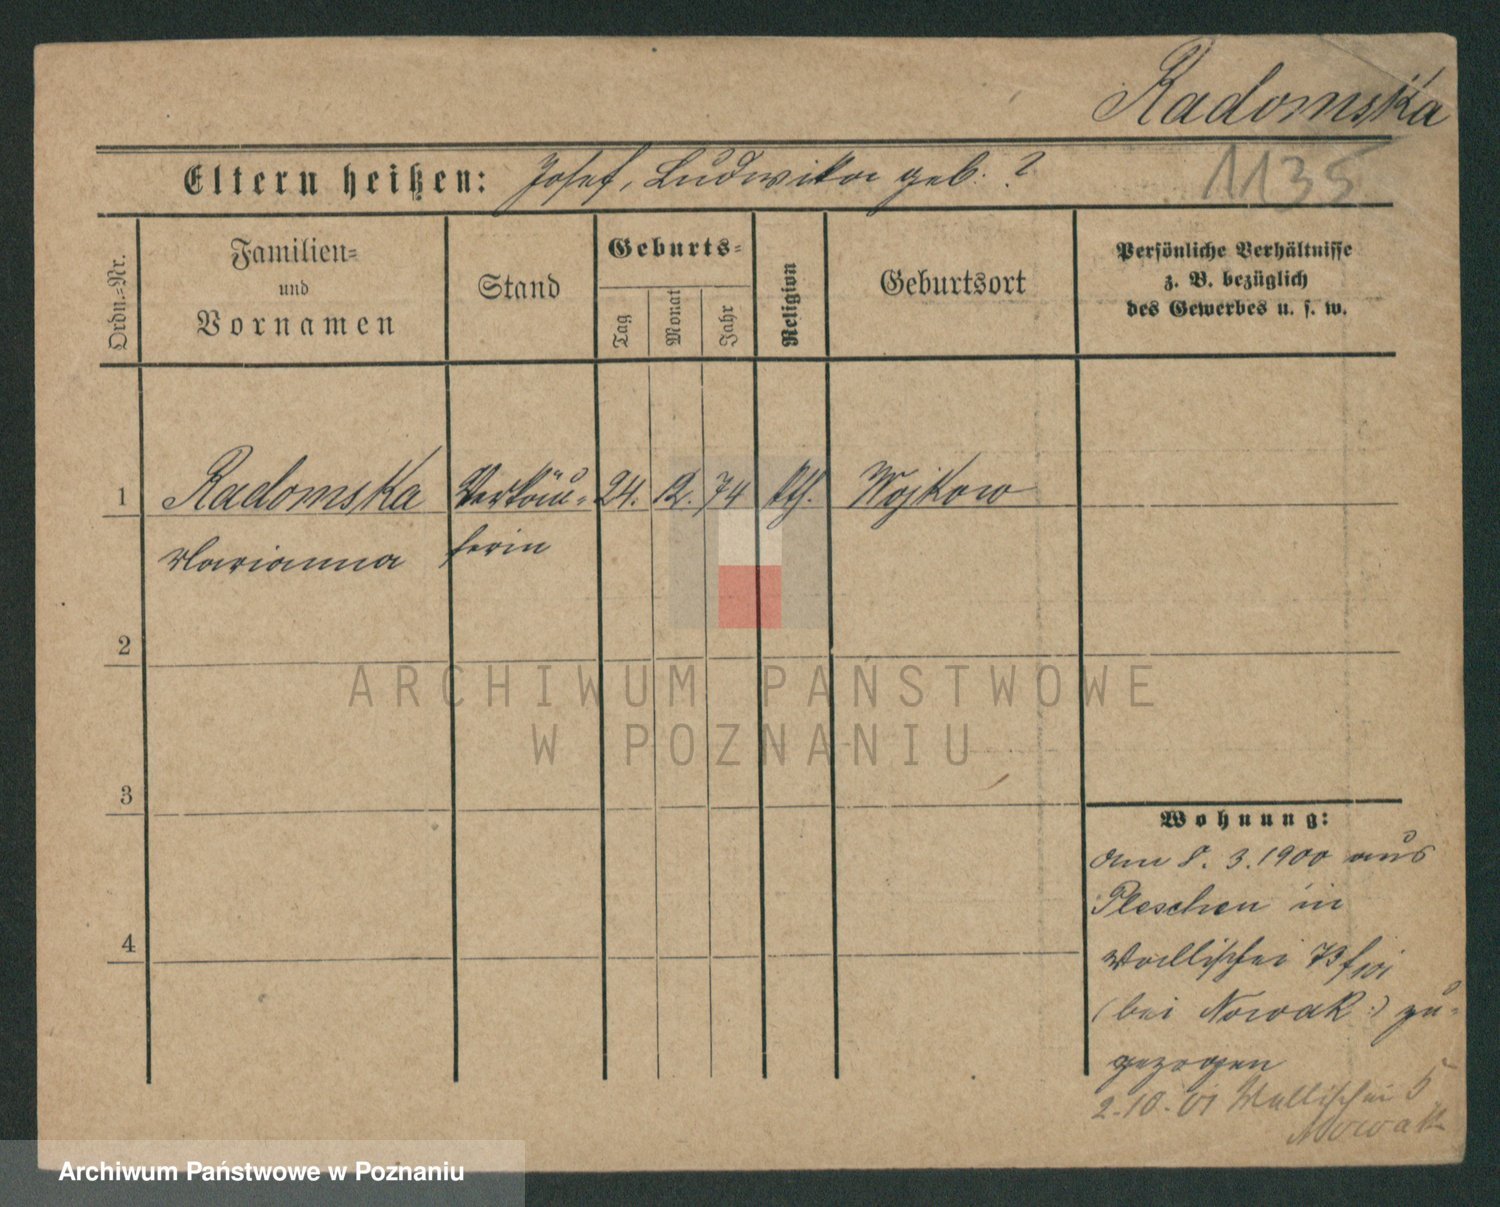 Radomska
1135
Eltern heißen: Josef, Ludwika geb. ?
Ordn.-Nr.
Familien-
und
Vornamen
Stand
Geburts-
Tag
Monat
Jahr
Religion
Geburtsort
Persönliche Verhältnisse
z. B. bezüglich
des Gewerbes u. s. w.
1 Radomska Verkäu- 24. 12. 74 kth. Wojkow
Marianna ferin
2
3
4
Wohnung:
am 8. 3. 1900 aus
Pleschen in
Wallischei 73
(bei Nowak) zu-
gezogen
2.10.01 Wallischei 5
Nowak
ARCHIWUM PAŃSTWOWE
W POZNANIU
Archiwum Państwowe w Poznaniu